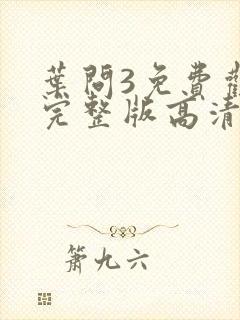 葉問3免費觀
完整版高清
簫九六